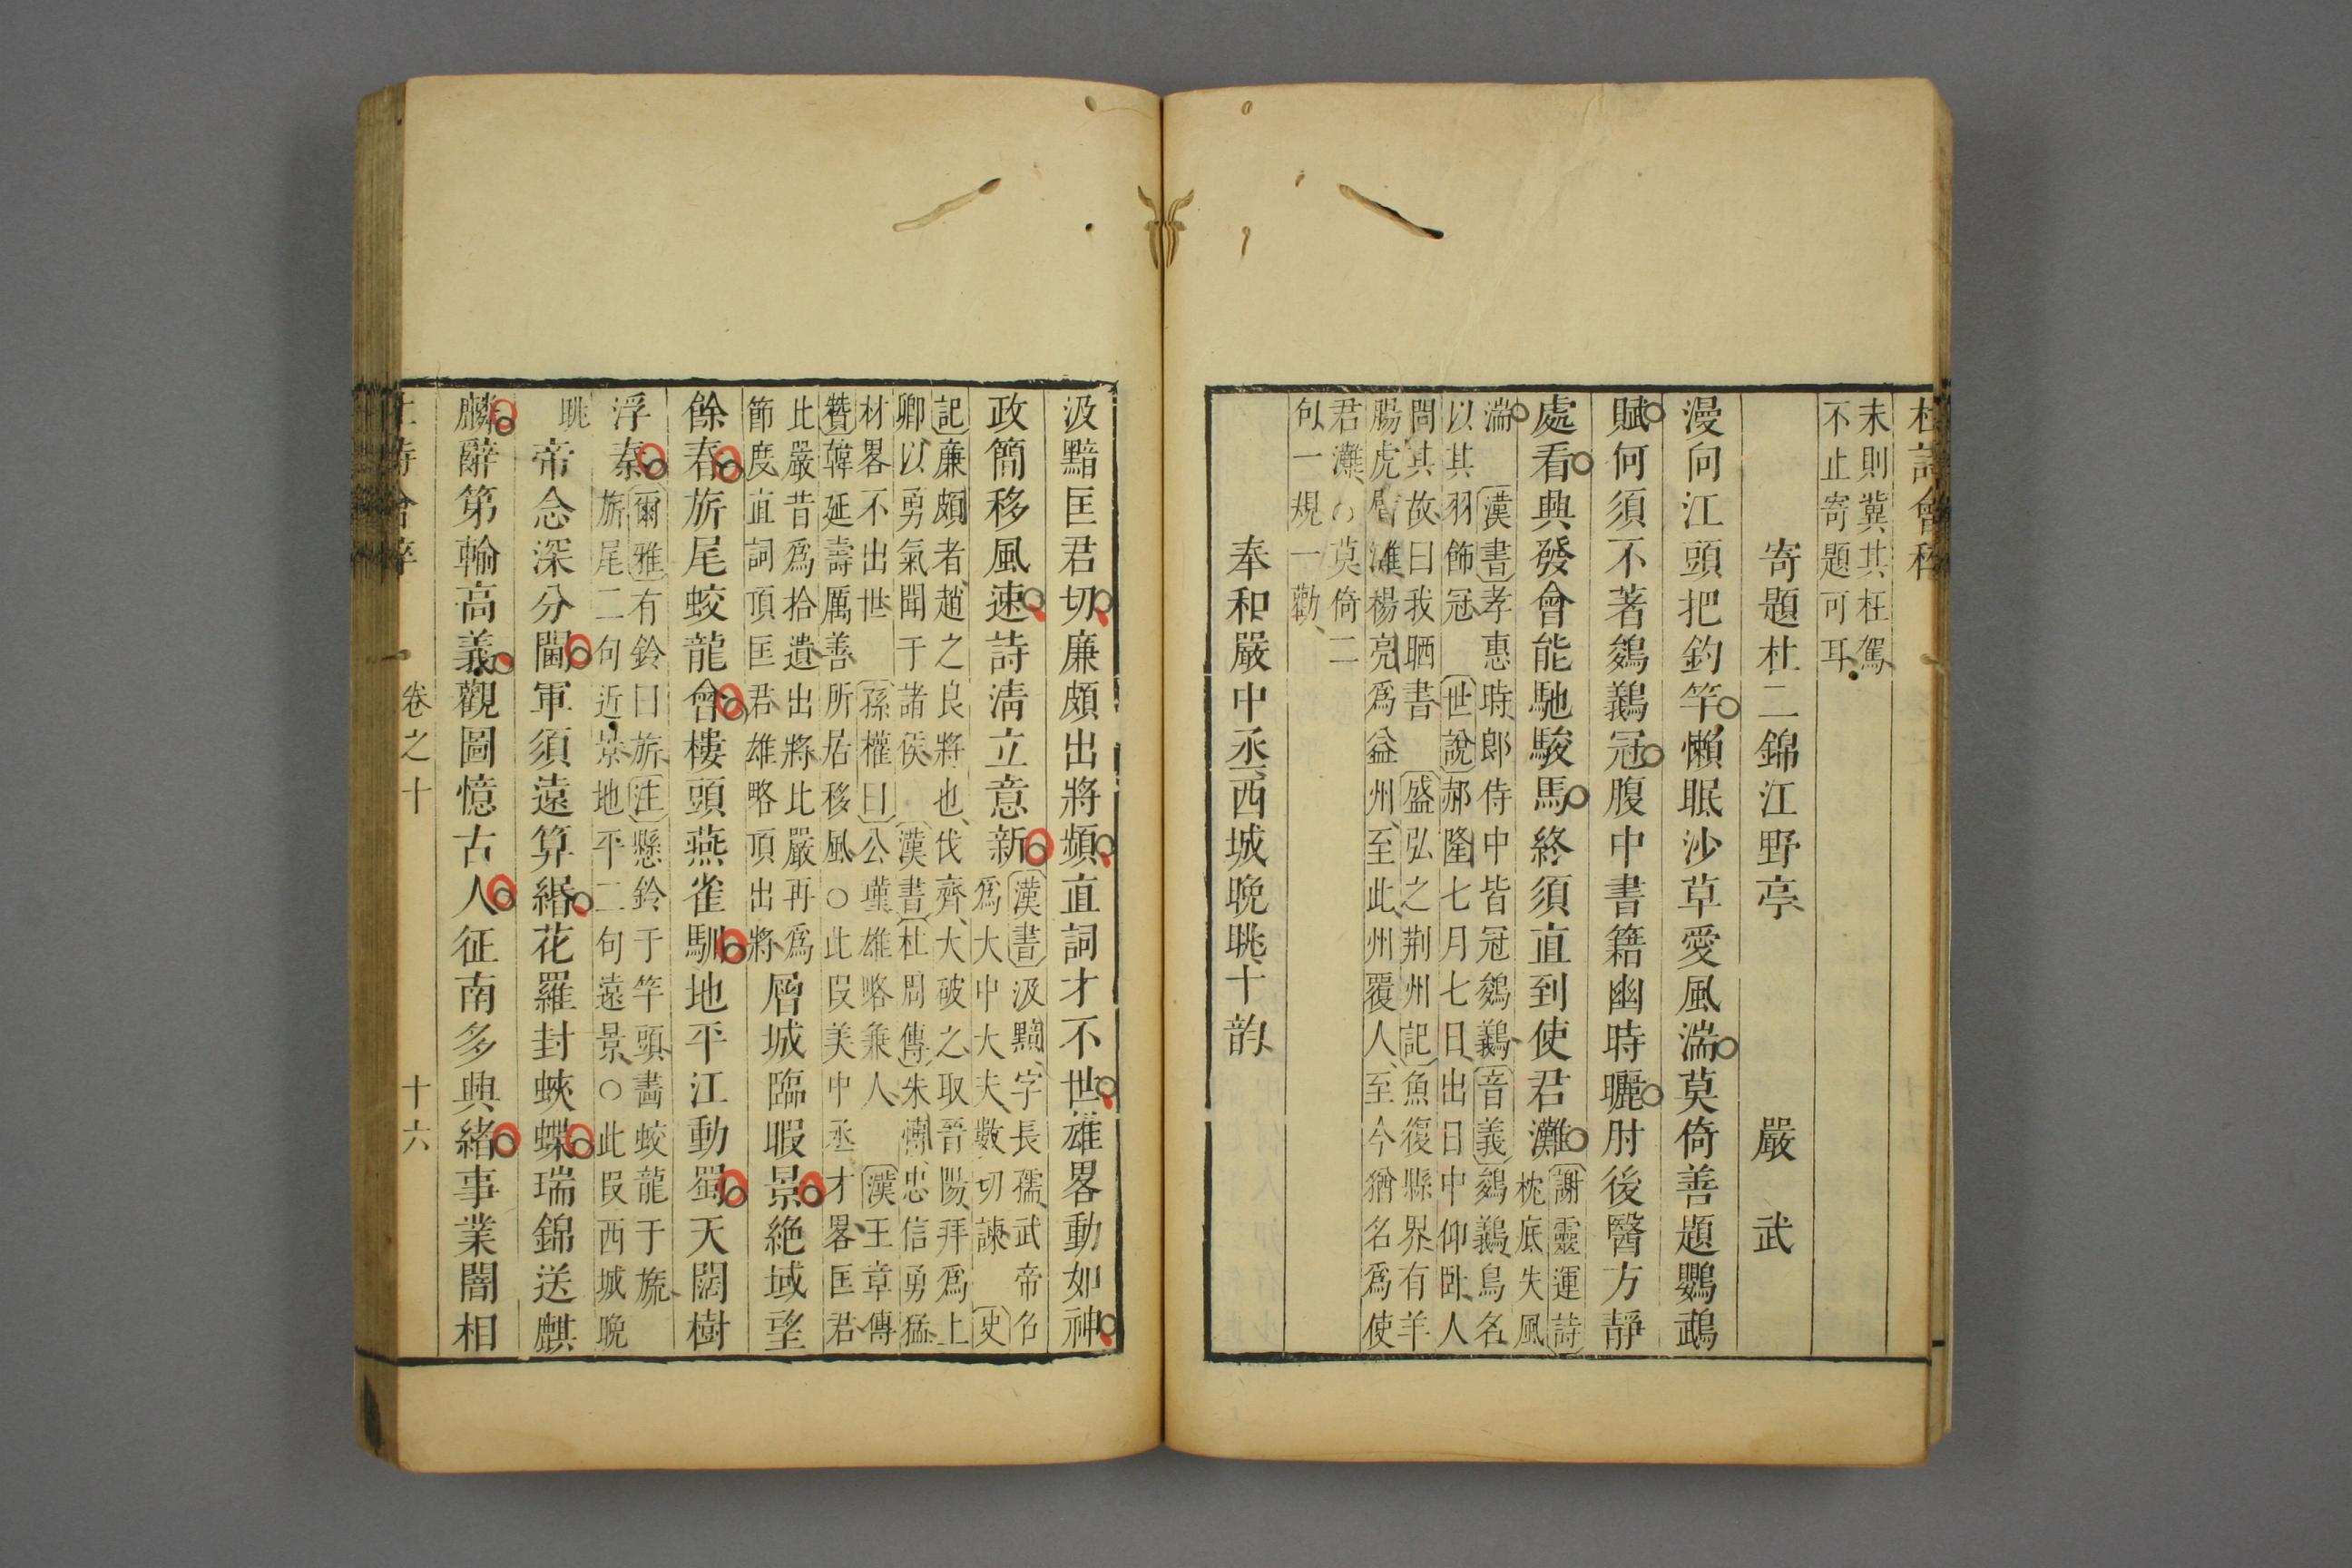 杜詩會稡
末則冀其枉駕
不止寄題可耳
寄題杜二錦江野亭 嚴武
漫向江頭把釣竿懶眠沙草愛風湍莫倚善題鸚鵡
賦何須不著鵕鸃冠腹中書籍幽時曬肘後醫方靜
處看興發會能馳駿馬終須直到使君灘
謝靈運詩
枕底失風
湍 漢書孝惠時郎侍中皆冠鵕鸃音義鵕鸃鳥名
以其羽飾冠 世說郝隆七月七日出日中仰臥人
問其故曰我晒書 盛弘之荆州記魚復縣界有羊
腸虎臂灘楊亮爲益州至此州覆人至今猶名爲使
君灘○莫倚二
句一規一勸
奉和嚴中丞西城晚眺十韵
汲黯匡君切廉頗出將頻直詞才不世雄畧動如神
政簡移風速詩淸立意新
漢書汲黯字長孺武帝召
爲大中大夫數切諫 史
記廉頗者趙之良將也伐齊大破之取晉陽拜爲上
卿以勇氣聞于諸侯 漢書杜周傳朱博忠信勇猛
材畧不出世 孫權曰公瑾雄略兼人 漢王章傳
贊韓延壽厲善所居移風○此叚美中丞才畧匡君
比嚴昔爲拾遺出將比嚴再爲
節度直詞頂匡君雄略頂出將
層城臨暇景絶域望
餘春旂尾蛟龍會樓頭燕雀馴地平江動蜀天闊樹
浮秦
爾雅有鈴曰旂注懸鈴于竿頭畵蛟龍于旒
旂尾二句近景地平二句遠景○此叚西城晚
眺
帝念深分閫軍須遠算緡花羅封蛺蝶瑞錦送麒
麟辭第輸高義觀圖憶古人征南多興緒事業闇相
杜詩會稡 卷之十 十六